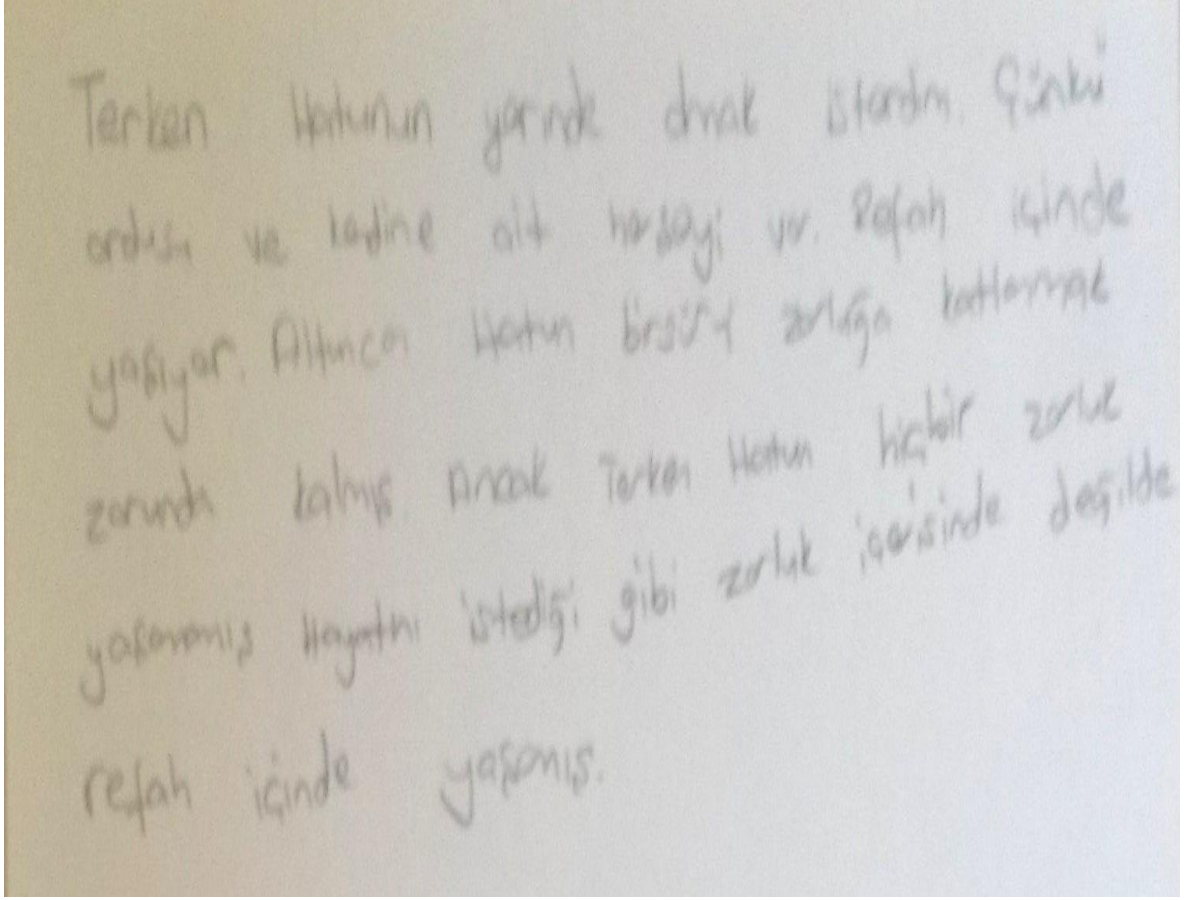 Terken Hatunun yerinde olmak isterdim. Çünkü
ordusu ve kendine ait herşeyi var. Refah içinde
yaşıyor. Altuncan Hatun birsürü zorluğa katlanmak
zorunda kalmış. Ancak Terken Hatun hiçbir zorluk
yaşamamış Hayatını istediği gibi zorluk içerisinde değilde
refah içinde yaşamış.